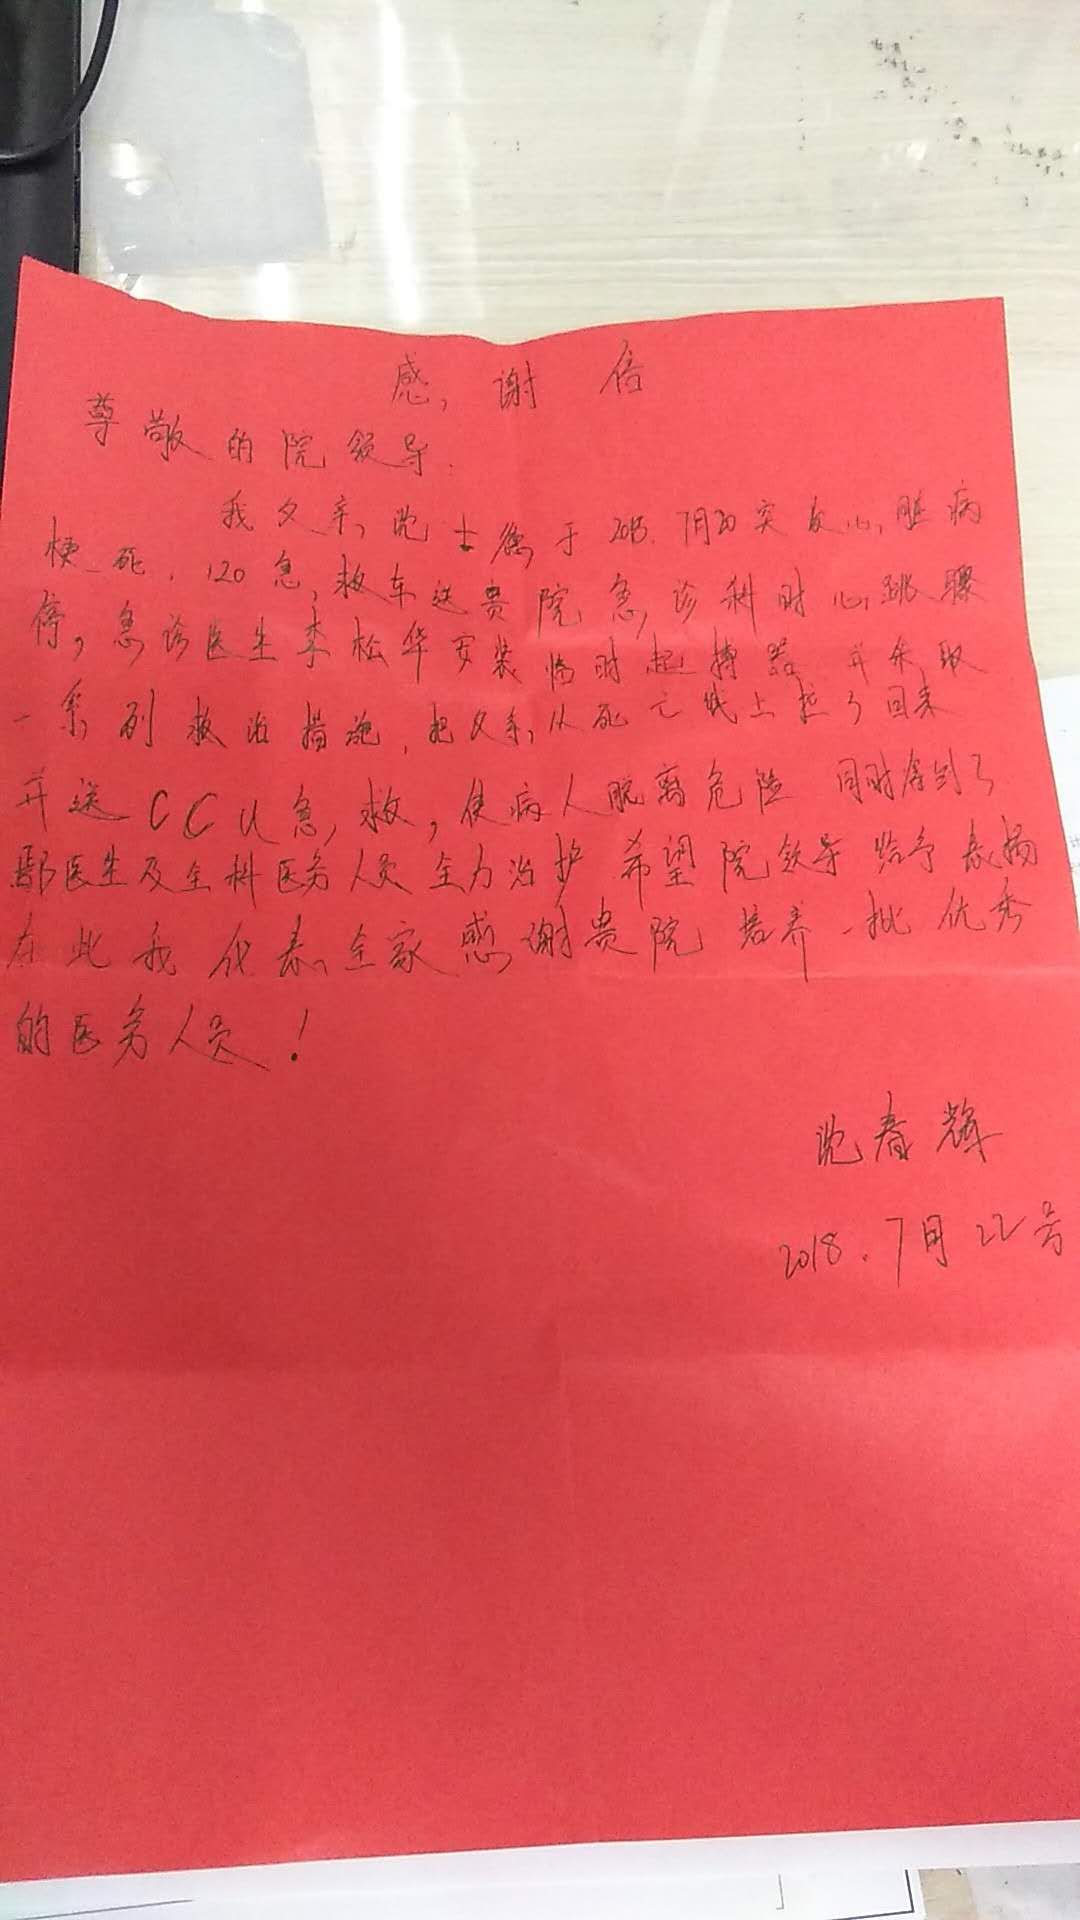 感谢信
尊敬的院领导.
我父亲沈士德于2018.7月20突发心脏病
梗死，120急救车送贵院急诊科时心跳骤
停，急诊医生李松华安装临时起搏器 并采取
一系列救治措施，把父亲从死亡线上拉了回来
并送CCU急救，使病人脱离危险 同时得到了
鄢医生及全科医务人员全力治护 希望院领导给予表扬
在此我代表全家感谢贵院培养一批优秀
的医务人员！
沈春辉
2018.7月22号